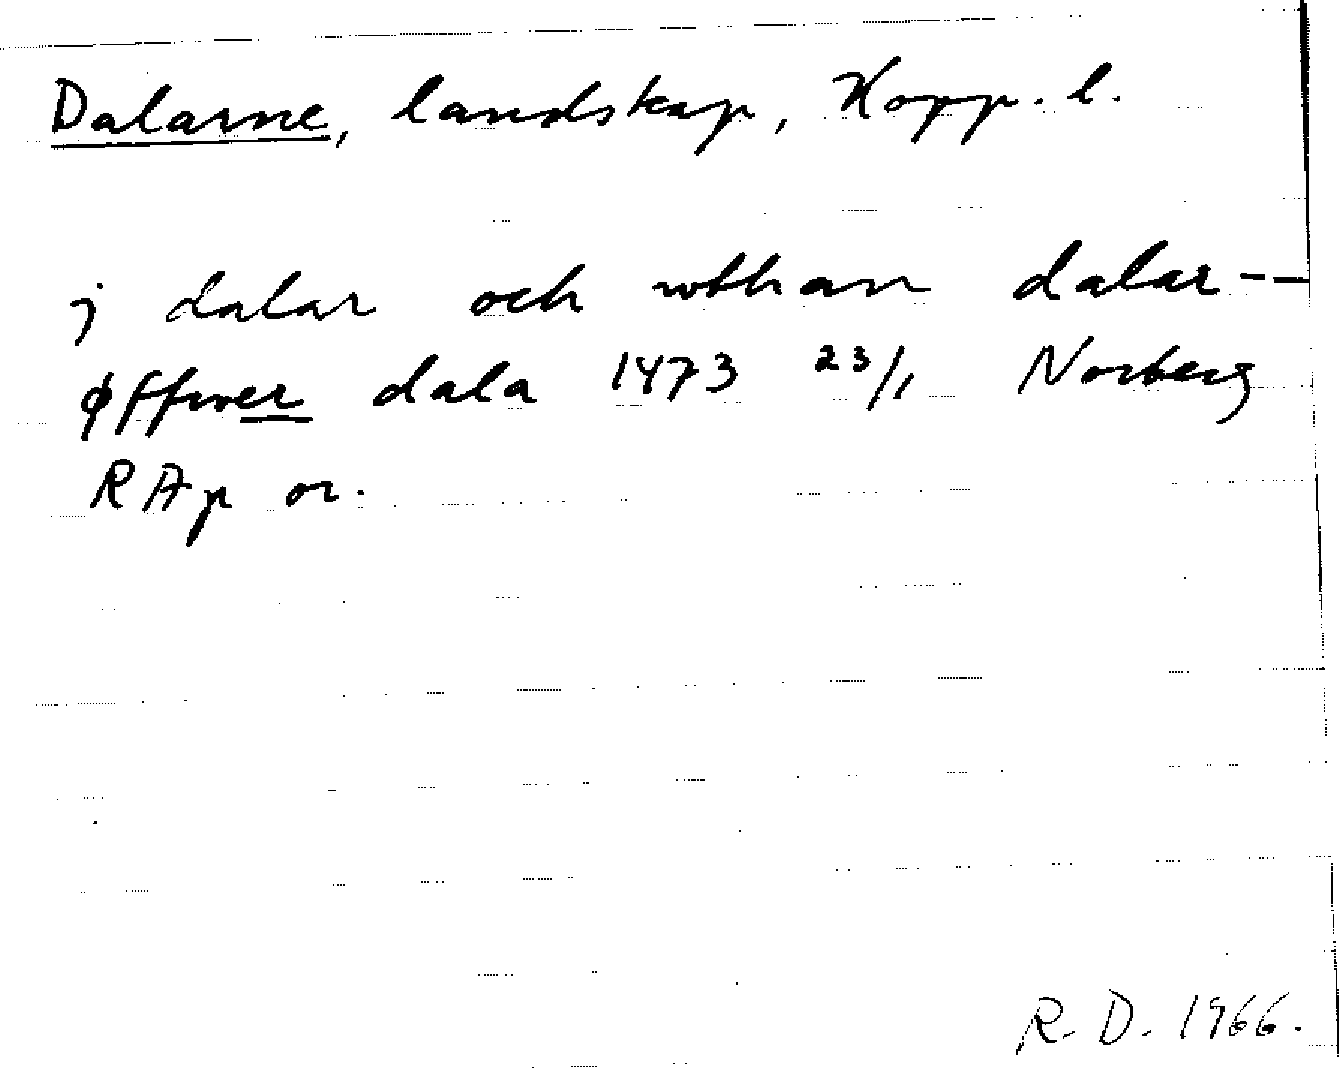 Dalarne, landskap, Kopp. l.
j dalar och wthan dalar --
øffwer dala 1473 23/1 Norberg
RAp or.
R. D. 1966.